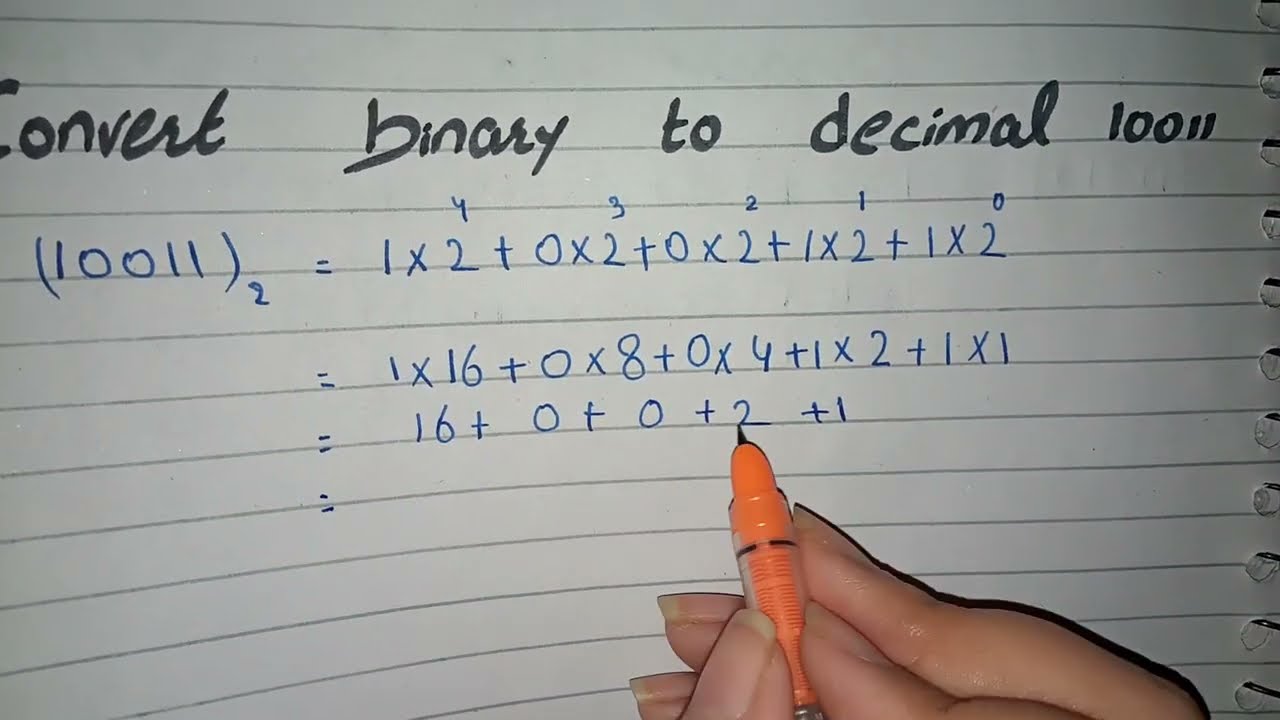 Convert binary to decimal 10011
(10011)₂ = 1×2⁴ + 0×2³ + 0×2² + 1×2¹ + 1×2⁰
= 1×16 + 0×8 + 0×4 + 1×2 + 1×1
= 16 + 0 + 0 + 2 + 1
=